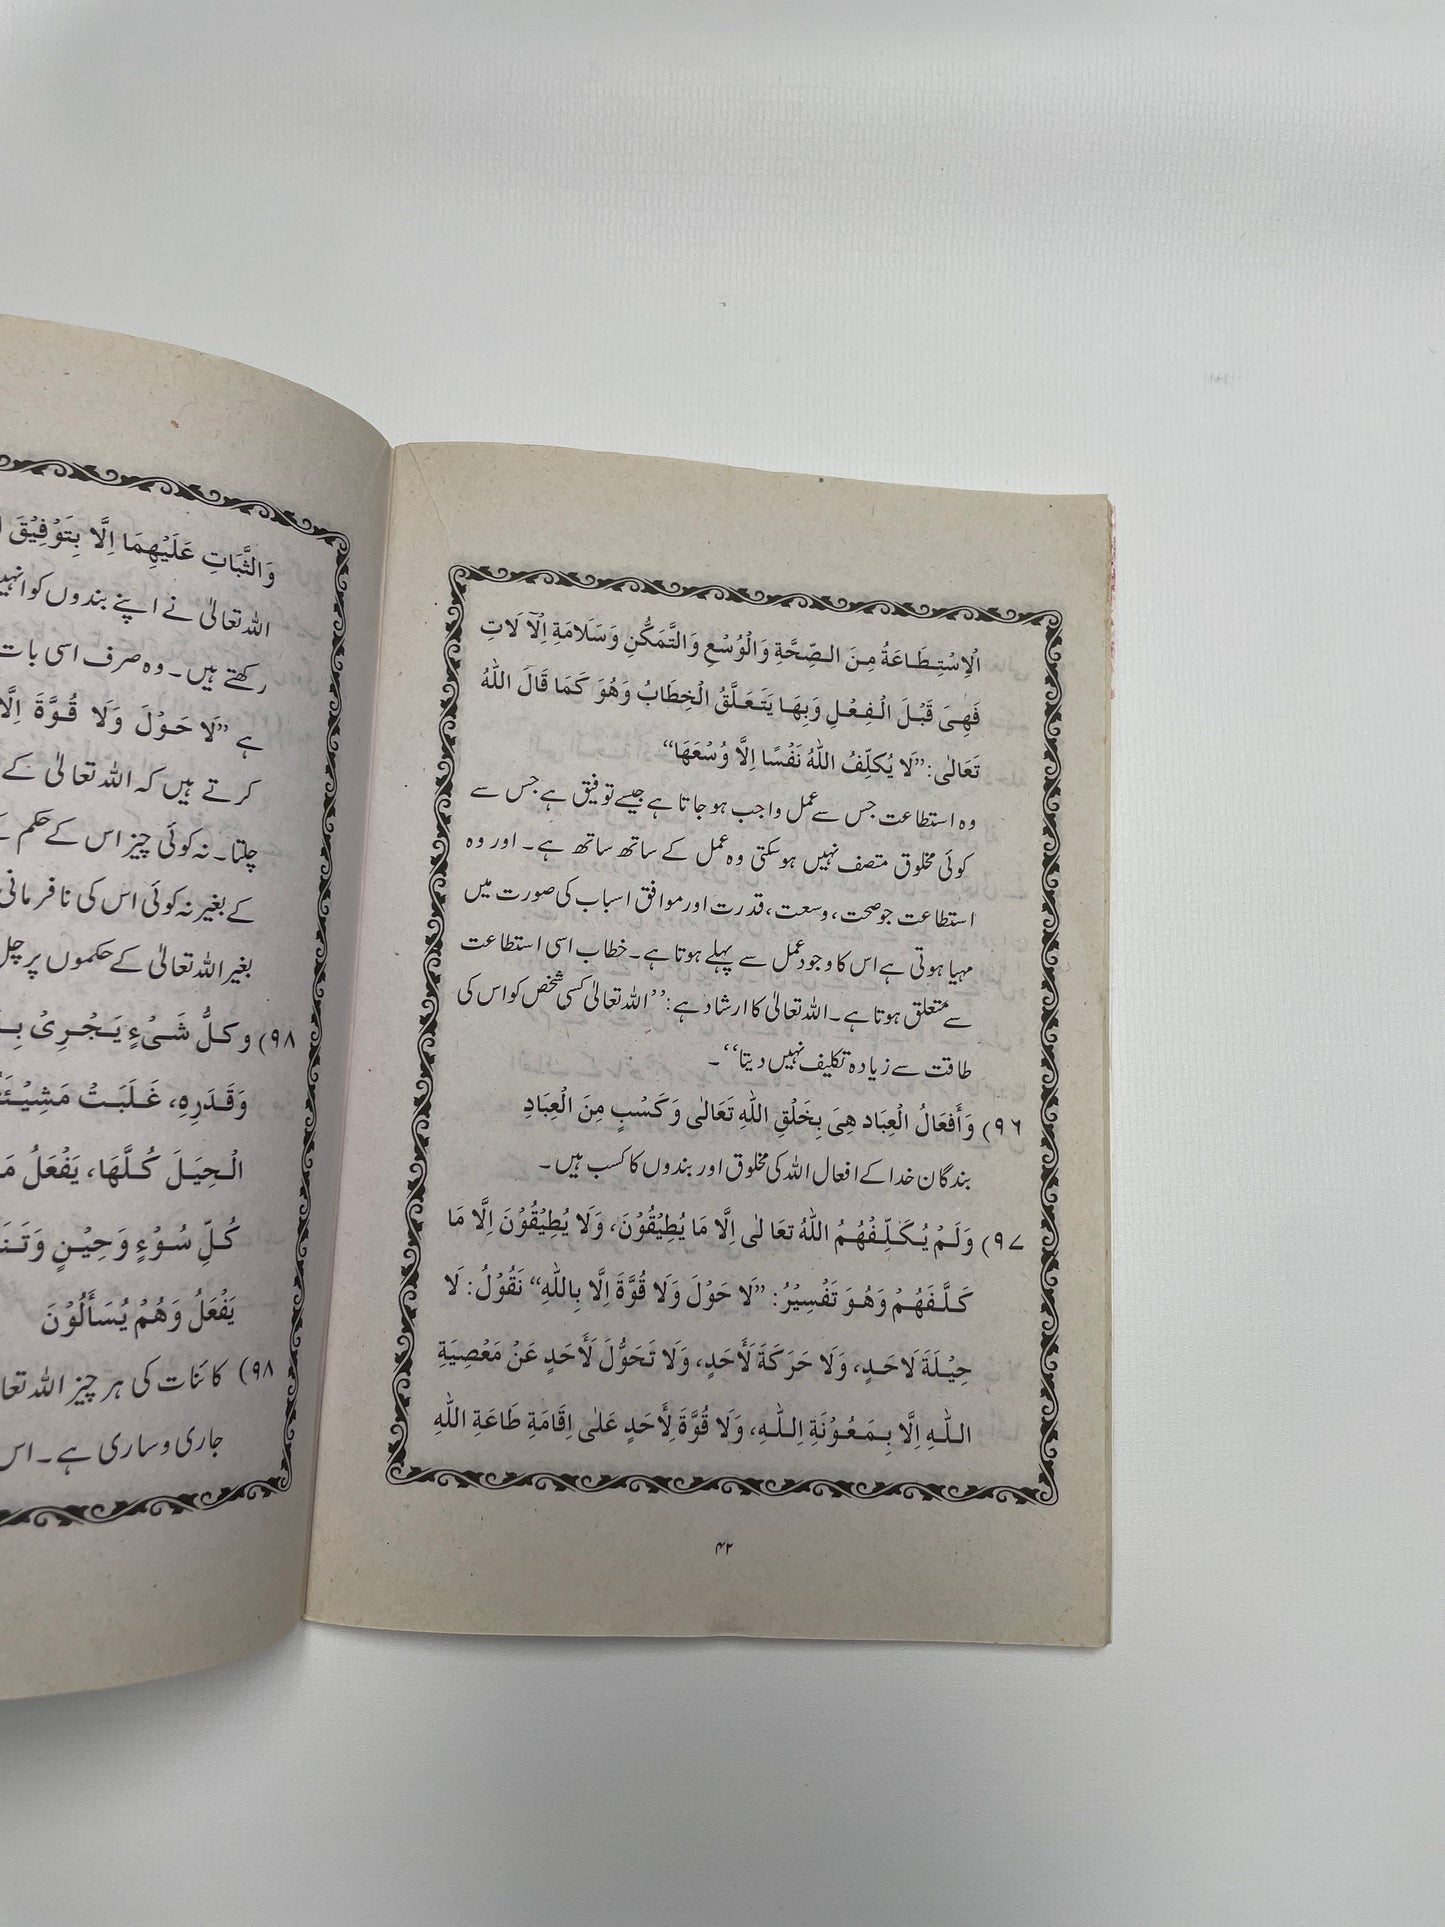 الْاِسْتِطَاعَةُ مِنَ الصِّحَّةِ وَالْوُسْعِ وَالتَّمَكُّنِ وَسَلَامَةِ اِلْاٰ لَاتِ
فَهِیَ قَبْلَ الْفِعْلِ وَبِهَا یَتَعَلَّقُ الْخِطَابُ وَهُوَ كَمَا قَالَ اللّٰهُ
تَعَالٰی: ”لَا یُكَلِّفُ اللّٰهُ نَفْسًا اِلَّا وُسْعَهَا“
وہ استطاعت جس سے عمل واجب ہو جاتا ہے جیسے توفیق ہے جس سے
کوئی مخلوق متصف نہیں ہو سکتی وہ عمل کے ساتھ ساتھ ہے۔ اور وہ
استطاعت جو صحت، وسعت، قدرت اور موافق اسباب کی صورت میں
مہیا ہوتی ہے اس کا وجود عمل سے پہلے ہوتا ہے۔ خطاب اسی استطاعت
سے متعلق ہوتا ہے۔ اللہ تعالیٰ کا ارشاد ہے: ’’اللہ تعالیٰ کسی شخص کو اس کی
طاقت سے زیادہ تکلیف نہیں دیتا‘‘۔
۹۶) وَأَفْعَالُ الْعِبَادِ هِیَ بِخَلْقِ اللّٰهِ تَعَالٰی وَكَسْبٍ مِنَ الْعِبَادِ
بندگان خدا کے افعال اللہ کی مخلوق اور بندوں کا کسب ہیں۔
۹۷) وَلَمْ یُكَلِّفْهُمُ اللّٰهُ تَعَالٰی اِلَّا مَا یُطِیْقُوْنَ، وَلَا یُطِیْقُوْنَ اِلَّا مَا
كَلَّفَهُمْ وَهُوَ تَفْسِیْرُ: ”لَا حَوْلَ وَلَا قُوَّةَ اِلَّا بِاللّٰهِ“ نَقُوْلُ: لَا
حِیْلَةَ لَاحَدٍ، وَلَا حَرَكَةَ لَأَحَدٍ، وَلَا تَحَوُّلَ لَأَحَدٍ عَنْ مَعْصِیَةِ
اللّٰهِ اِلَّا بِمَعُوْنَةِ اللّٰهِ، وَلَا قُوَّةَ لِأَحَدٍ عَلٰی اِقَامَةِ طَاعَةِ اللّٰهِ
۴۲
وَالثَّبَاتِ عَلَیْهِمَا اِلَّا بِتَوْفِیْقِ
اللہ تعالیٰ نے اپنے بندوں کو
رکھتے ہیں۔ وہ صرف اسی بات
ہے ”لَا حَوْلَ وَلَا قُوَّةَ اِلَّا
کرتے ہیں کہ اللہ تعالیٰ کے
چلتا۔ نہ کوئی چیز اس کے حکم
کے بغیر نہ کوئی اس کی نافرمانی
بغیر اللہ تعالیٰ کے حکموں پر چل
۹۸) وكلُّ شَیْءٍ یَجْرِیْ
وَقَدَرِهِ، غَلَبَتْ
الْحِیَلَ كُلَّهَا، یَفْعَلُ
كُلِّ سُوْءٍ وَحِیْنٍ
یَفْعَلُ وَهُمْ یُسَأَلُوْنَ
۹۸) کائنات کی ہر چیز اللہ
جاری و ساری ہے۔ اس